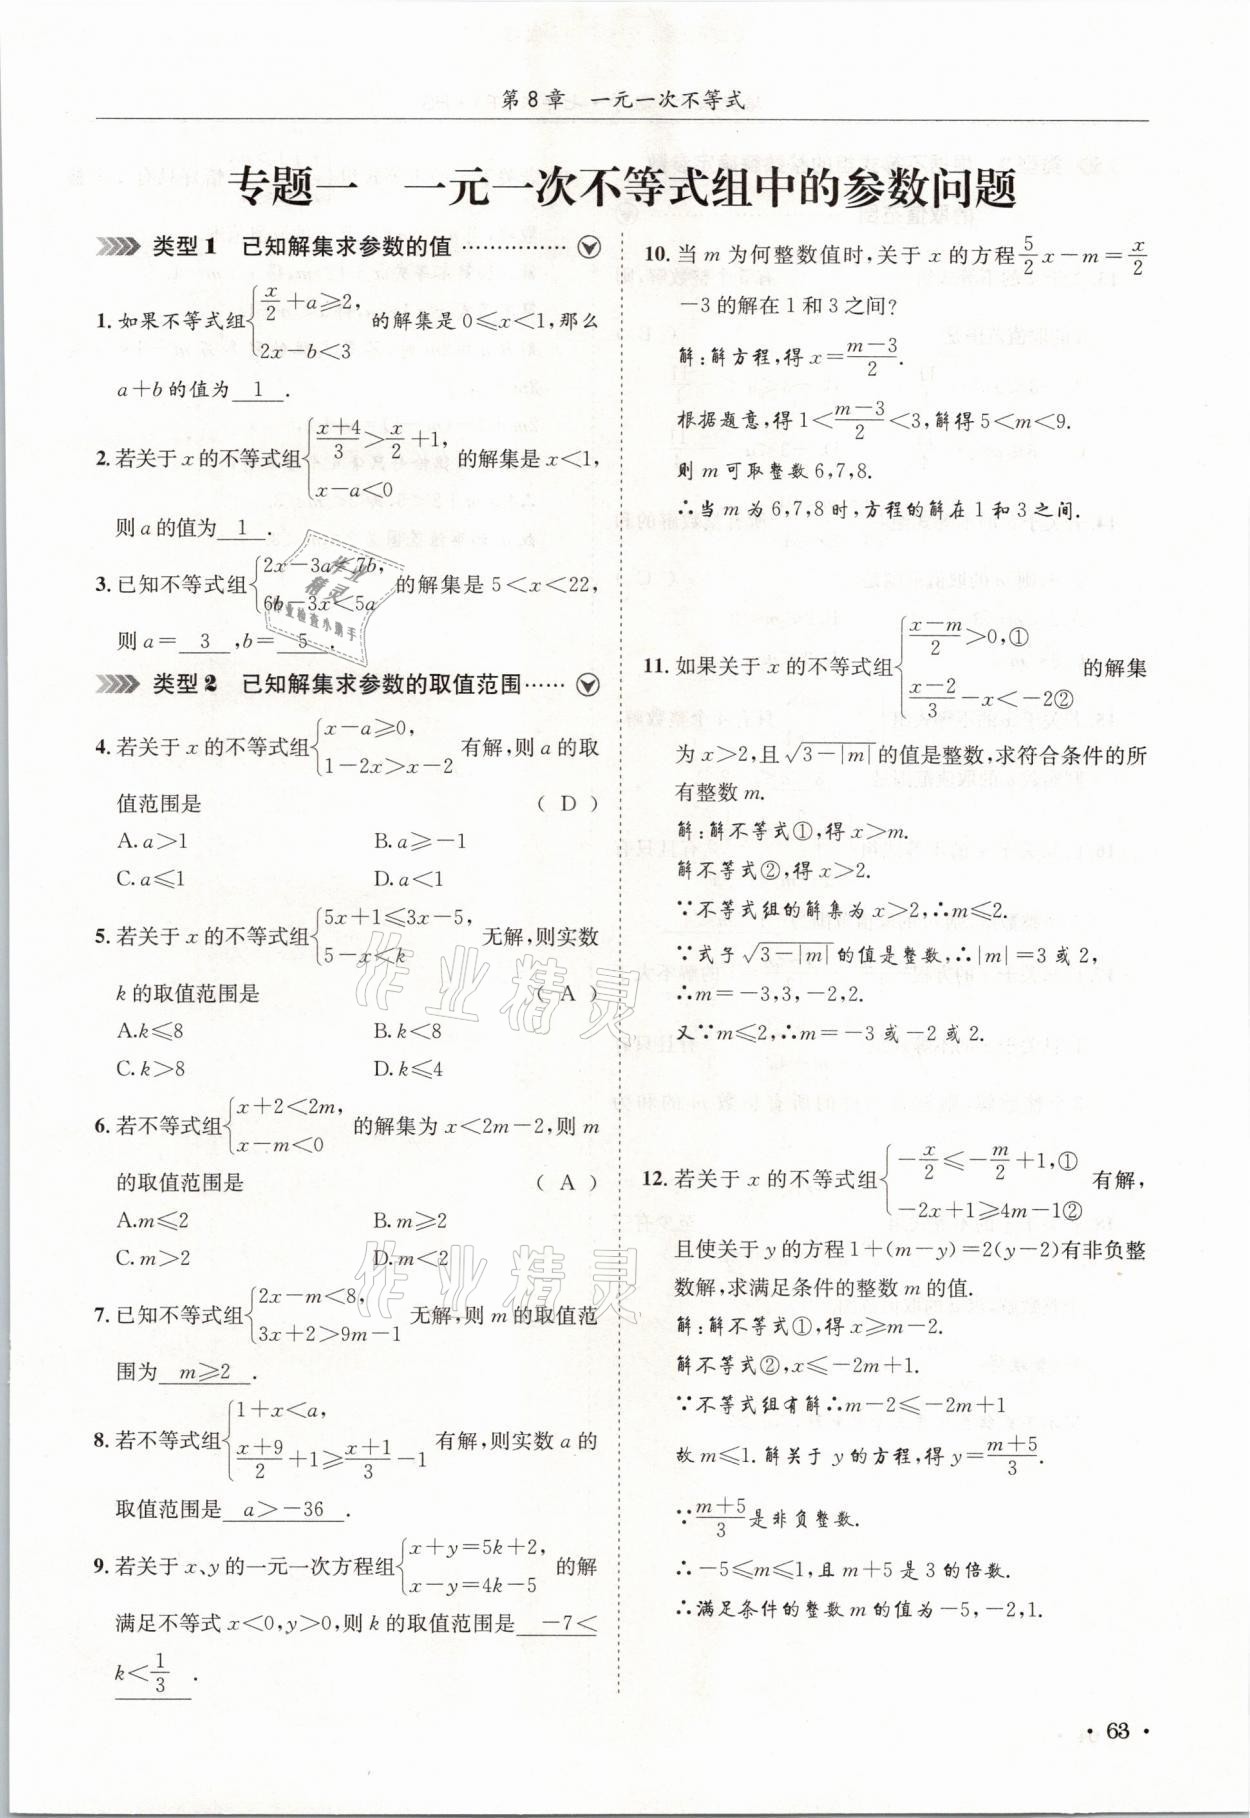 第8章 一元一次不等式
专题一 一元一次不等式组中的参数问题
类型1 已知解集求参数的值 ……………
1.如果不等式组{x/2+a≥2, 2x-b<3 的解集是0≤x<1,那么
a+b的值为 1 .
2.若关于x的不等式组{(x+4)/3>x/2+1, x-a<0 的解集是x<1,
则a的值为 1 .
3.已知不等式组{2x-3a<7b, 6b-3x<5a 的解集是5<x<22,
则a= 3 ,b= 5 .
类型2 已知解集求参数的取值范围……
4.若关于x的不等式组{x-a≥0, 1-2x>x-2 有解,则a的取
值范围是 ( D )
A.a>1 B.a≥-1
C.a≤1 D.a<1
5.若关于x的不等式组{5x+1≤3x-5, 5-x<k 无解,则实数
k的取值范围是 ( A )
A.k≤8 B.k<8
C.k>8 D.k≤4
6.若不等式组{x+2<2m, x-m<0 的解集为x<2m-2,则m
的取值范围是 ( A )
A.m≤2 B.m≥2
C.m>2 D.m<2
7.已知不等式组{2x-m<8, 3x+2>9m-1 无解,则m的取值范
围为 m≥2 .
8.若不等式组{1+x<a, (x+9)/2+1≥(x+1)/3-1 有解,则实数a的
取值范围是 a>-36 .
9.若关于x、y的一元一次方程组{x+y=5k+2, x-y=4k-5 的解
满足不等式x<0,y>0,则k的取值范围是 -7<
k<1/3 .
10.当m为何整数值时,关于x的方程5/2x-m=x/2
-3的解在1和3之间?
解:解方程,得x=(m-3)/2.
根据题意,得1<(m-3)/2<3,解得5<m<9.
则m可取整数6,7,8.
∴当m为6,7,8时,方程的解在1和3之间.
11.如果关于x的不等式组{(x-m)/2>0,① (x-2)/3-x<-2② 的解集
为x>2,且√(3-|m|)的值是整数,求符合条件的所
有整数m.
解:解不等式①,得x>m.
解不等式②,得x>2.
∵不等式组的解集为x>2,∴m≤2.
∵式子√(3-|m|)的值是整数,∴|m|=3或2,
∴m=-3,3,-2,2.
又∵m≤2,∴m=-3或-2或2.
12.若关于x的不等式组{-x/2≤-m/2+1,① -2x+1≥4m-1② 有解,
且使关于y的方程1+(m-y)=2(y-2)有非负整
数解,求满足条件的整数m的值.
解:解不等式①,得x≥m-2.
解不等式②,x≤-2m+1.
∵不等式组有解∴m-2≤-2m+1
故m≤1.解关于y的方程,得y=(m+5)/3.
∵(m+5)/3是非负整数.
∴-5≤m≤1,且m+5是3的倍数.
∴满足条件的整数m的值为-5,-2,1.
·63·
作业精灵
作业检查小助手
作业精灵
作业精灵